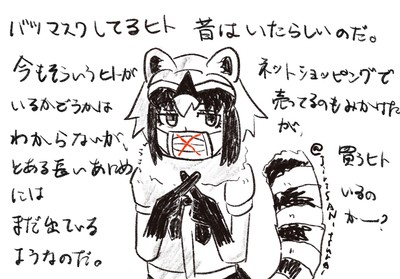 バツマスクしてるヒト
昔はいたらしいのだ。
今もそういうヒトが
いるかどうかは
わからないが、
とある長いあれめ
には
まだ出ている
ようなのだ。
ネットショッピングで
売ってるのもみかけた
が、
買うヒト
いるの
かー?